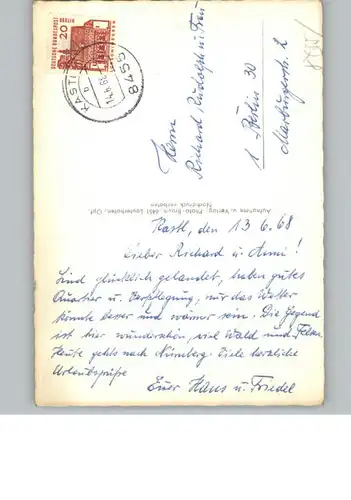 DEUTSCHE BUNDESPOST BERLIN
20
KASTL
b
14.6.68
8455
Herrn
Richard Rudolph u. Frau
1 Berlin 30
Marburgerstr. 2
Aufnahme u. Verlag: Photo-Braun, 8451 Lauterhofen, Opf.
Nachdruck verboten
Kastl, den 13.6.68
Lieber Richard u. Anni!
Sind glücklich gelandet, haben gutes
Quartier u. Verpflegung, nur das Wetter
könnte besser und wärmer sein. Die Gegend
ist hier wunderschön, viel Wald und Felsen.
Heute gehts nach Nürnberg. Viele herzliche
Urlaubsgrüße
Euer Hans u. Friedel